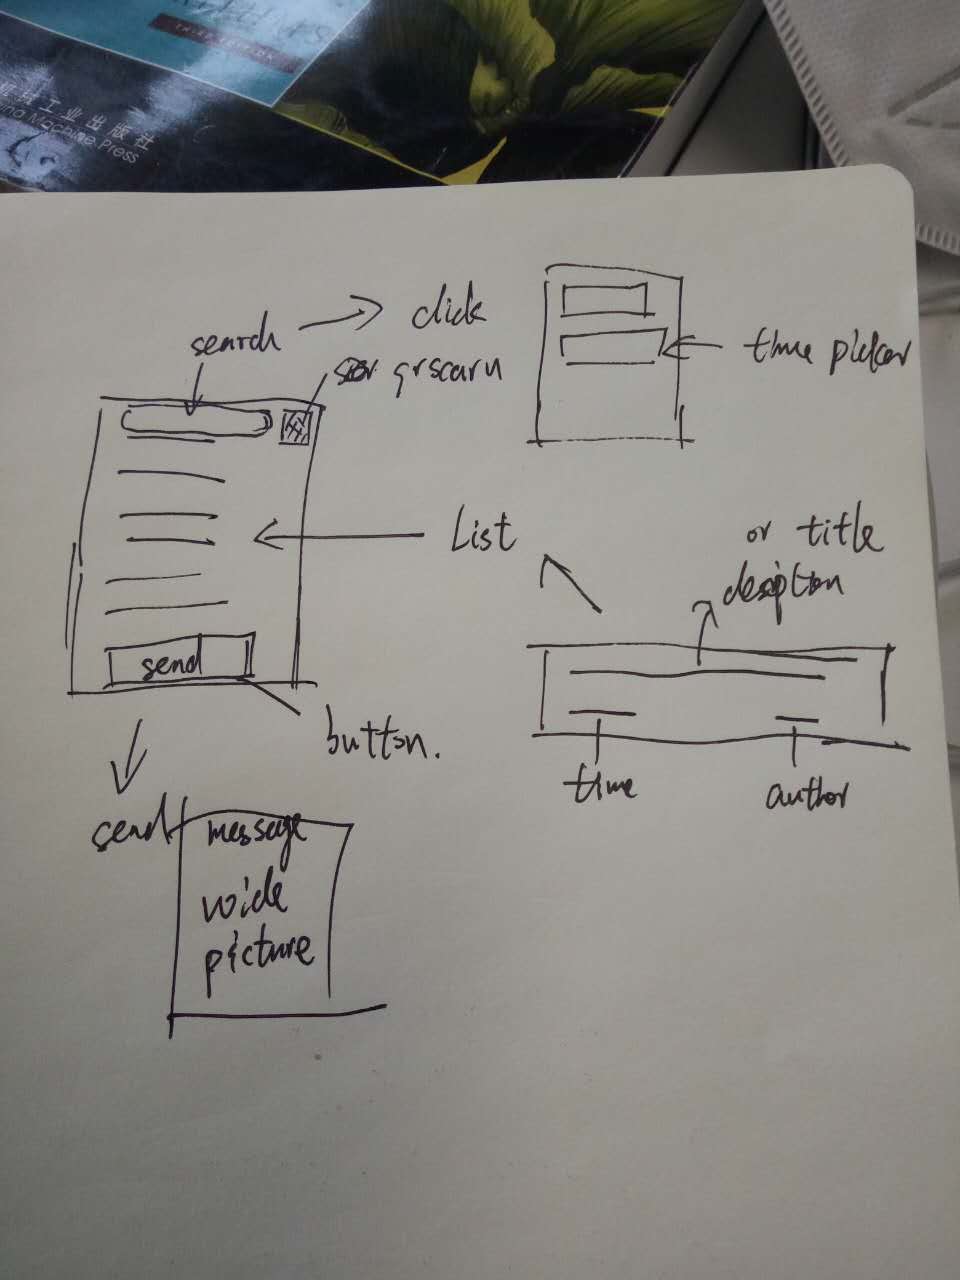 工业出版社
Machine Press
search
click
qrscarn
time picker
List
or title
desiption
send
button.
time
author
send
message
voide
picture